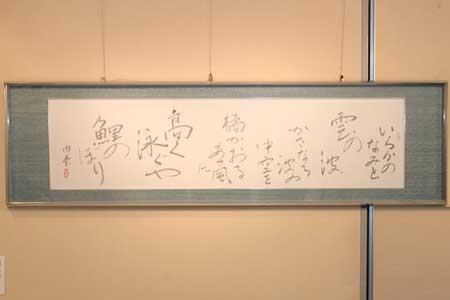 いらかの
なみと
雲の
波
かさなる
波の
中空を
橘かおる
あ風に
高く
泳ぐや
鯉の
ぼり